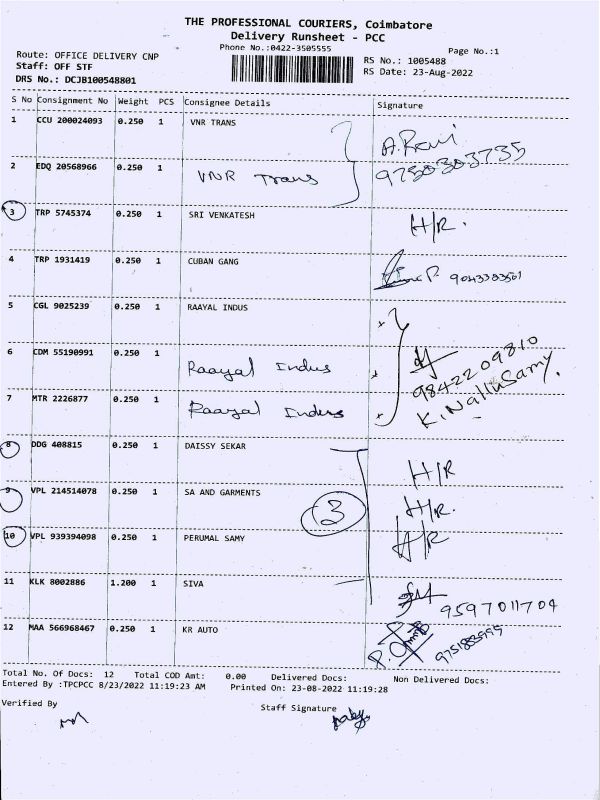 THE PROFESSIONAL COURIERS, Coimbatore
Delivery Runsheet - PCC
Phone No.:0422-3505555
Page No.:1
Route: OFFICE DELIVERY CNP
RS No.: 1005488
Staff: OFF STF
RS Date: 23-Aug-2022
DRS No.: DCJB100548801
S No Consignment No Weight PCS Consignee Details Signature
1 CCU 200024093 0.250 1 VNR TRANS A.Ravi
2 EDQ 20568966 0.250 1 VNR Trans 9750303735
3 TRP 5745374 0.250 1 SRI VENKATESH H/R.
4 TRP 1931419 0.250 1 CUBAN GANG 9043383501
5 CGL 9025239 0.250 1 RAAYAL INDUS
6 CDM 55190991 0.250 1 Raayal Indus 9842209810
7 MTR 2226877 0.250 1 Raayal Indus K.NalluSamy.
8 DDG 408815 0.250 1 DAISSY SEKAR H/R
9 VPL 214514078 0.250 1 SA AND GARMENTS H/R.
3
10 VPL 939394098 0.250 1 PERUMAL SAMY H/R
11 KLK 8002886 1.200 1 SIVA 9597011704
12 MAA 566968467 0.250 1 KR AUTO
Total No. Of Docs: 12 Total COD Amt: 0.00 Delivered Docs: Non Delivered Docs:
Entered By :TPCPCC 8/23/2022 11:19:23 AM Printed On: 23-08-2022 11:19:28
Verified By
Staff Signature